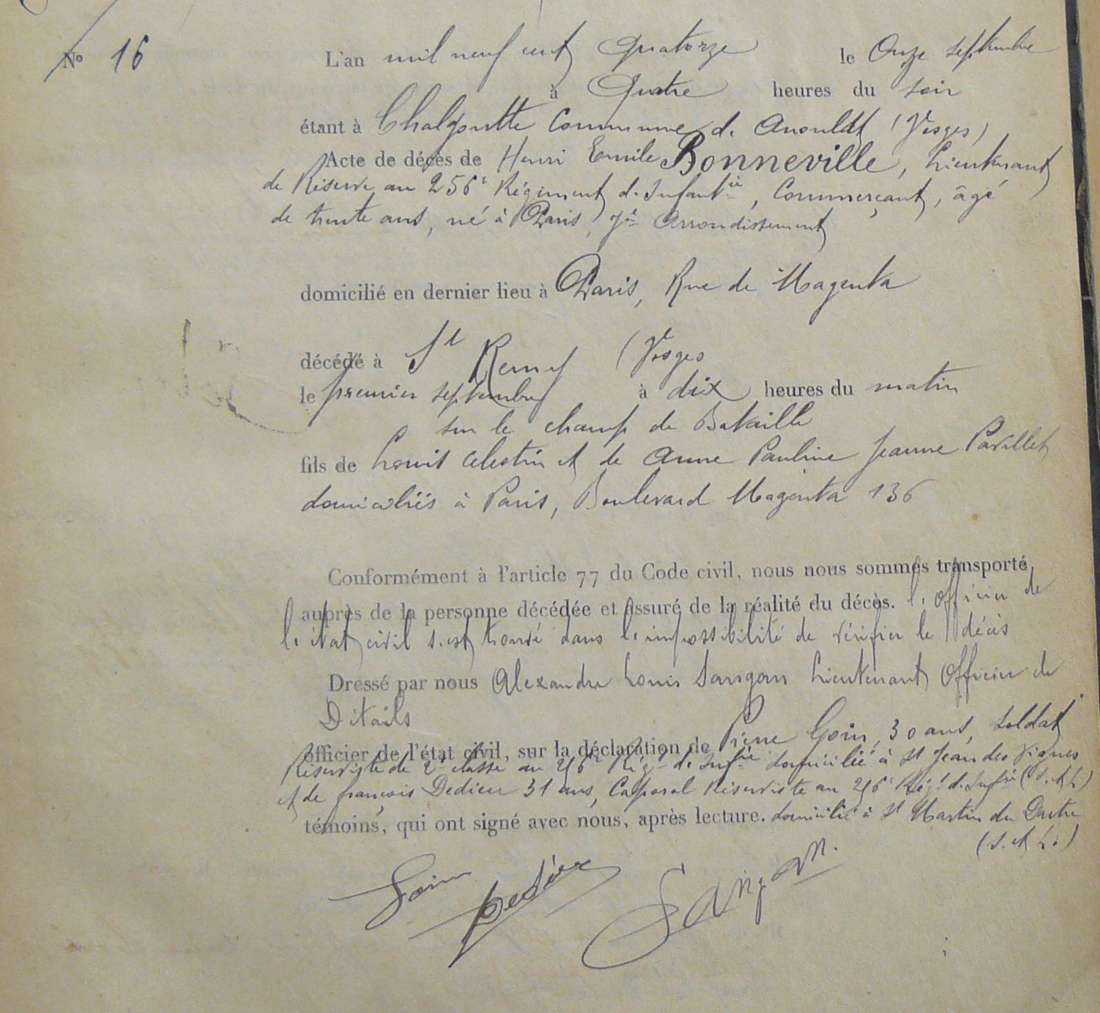 N° 16
L'an mil neuf cent Quatorze le Onze septembre
à Quatre heures du soir
étant à Chalgoutte Commune d. Anould (Vosges)
Acte de décès de Henri Emile Bonneville, Lieutenant
de Réserve au 256e Régiment d. Infantie, Commerçant, âgé
de trente ans, né à Paris, Arrondissement
domicilié en dernier lieu à Paris, Rue de Magenta
décédé à St Remy (Vosges
le premier septembre à dix heures du matin
sur le champ de Bataille
fils de Louis Celestin et de Anne Pauline Jeanne Pavillet
domiciliés à Paris, Boulevard Magenta 136
Conformément à l'article 77 du Code civil, nous nous sommes transporté
auprès de la personne décédée et assuré de la réalité du décès. l'officier de
l'état civil s'est trouvé dans l'impossibilité de vérifier le décès
Dressé par nous Alexandre Louis Sangan Lieutenant Officier de
Détails
officier de l'état civil, sur la déclaration de Pierre Goin, 30 ans, soldat
Réserviste de 2e classe au Regt d. Infie domicilié à St Jean des Vignes
et de françois Dedieu 31 ans, Caporal Réserviste au Régt d. Infie (S. et L.)
témoins, qui ont signé avec nous, après lecture. domicilié à St Martin du Tartre
(S. et L.)
Goin Dedieu Sangan